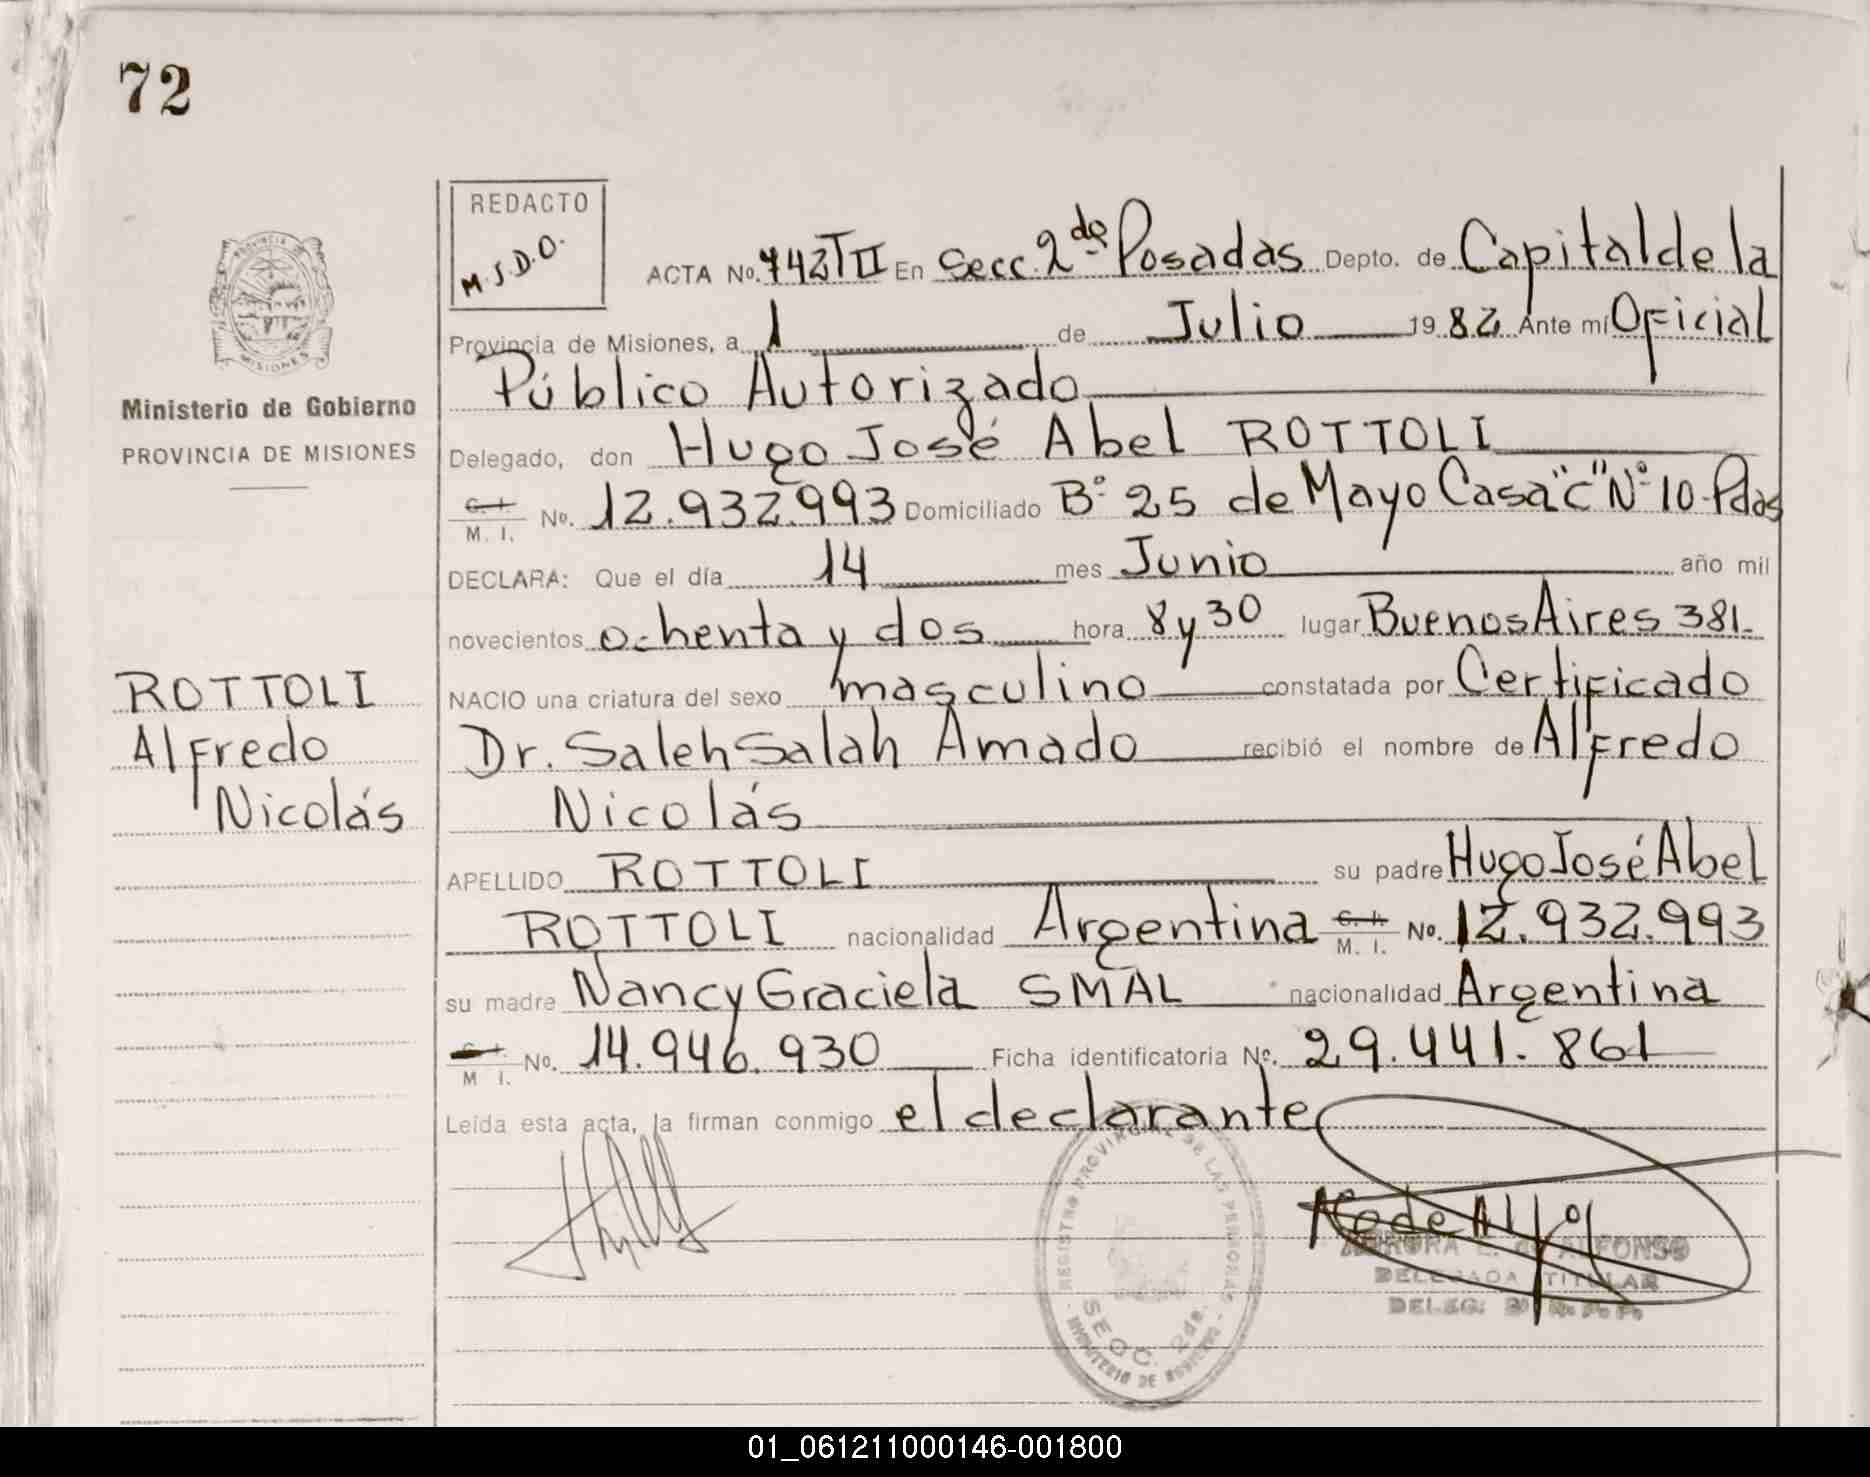 72
REDACTO
M.S.D.O.
ACTA No. 742 T II En Secc. 2da Posadas Depto. de Capital de la
Provincia de Misiones, a 1 de Julio 1982 Ante mí Oficial
Público Autorizado
Delegado, don Hugo José Abel ROTTOLI
C. I. M. I. No. 12.932.993 Domiciliado B° 25 de Mayo Casa "C" N° 10-Pdas
DECLARA: Que el día 14 mes Junio año mil
novecientos ochenta y dos hora 8 y 30 lugar Buenos Aires 381-
NACIO una criatura del sexo masculino constatada por Certificado
Dr. Saleh Salah Amado recibió el nombre de Alfredo
Nicolás
APELLIDO ROTTOLI su padre Hugo José Abel
ROTTOLI nacionalidad Argentina C. I. M. I. No. 12.932.993
su madre Nancy Graciela SMAL nacionalidad Argentina
C. I. M I. No. 14.946.930 Ficha identificatoria No. 29.441.861
Leída esta acta, la firman conmigo el declarante
Ministerio de Gobierno
PROVINCIA DE MISIONES
ROTTOLI
Alfredo
Nicolás
PROVINCIA DE
MISIONES
REGISTRO PROVINCIAL DE LAS PERSONAS
SECC. 2da.
MINISTERIO DE GOBIERNO
AURORA E. de ALFONSO
DELEGADA TITULAR
DELEG.
01_061211000146-001800